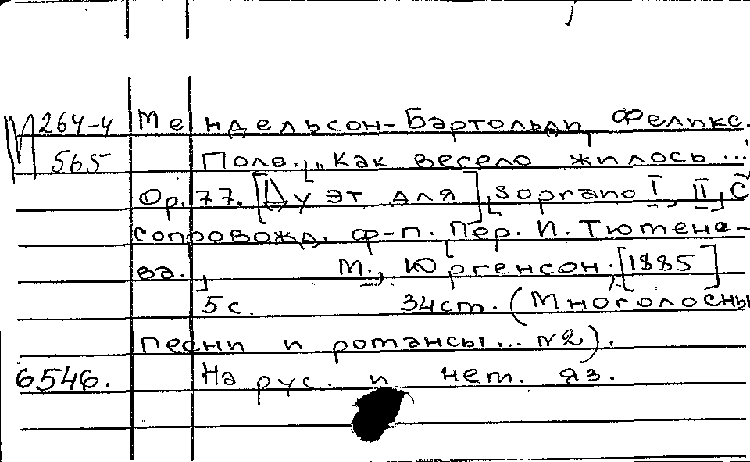 М 264-4 Мендельсон-Бартольди, Феликс.
565 Поле. „Как весело жилось..."
Op. 77. [Дуэт для] soprano I, II, С
сопровожд. ф-п. Пер. И. Тютене-
ва. М., Юргенсон. [1885]
5 с. 34 ст. (Многолосны
песни и романсы... №2).
6546. На рус. и нем. яз.